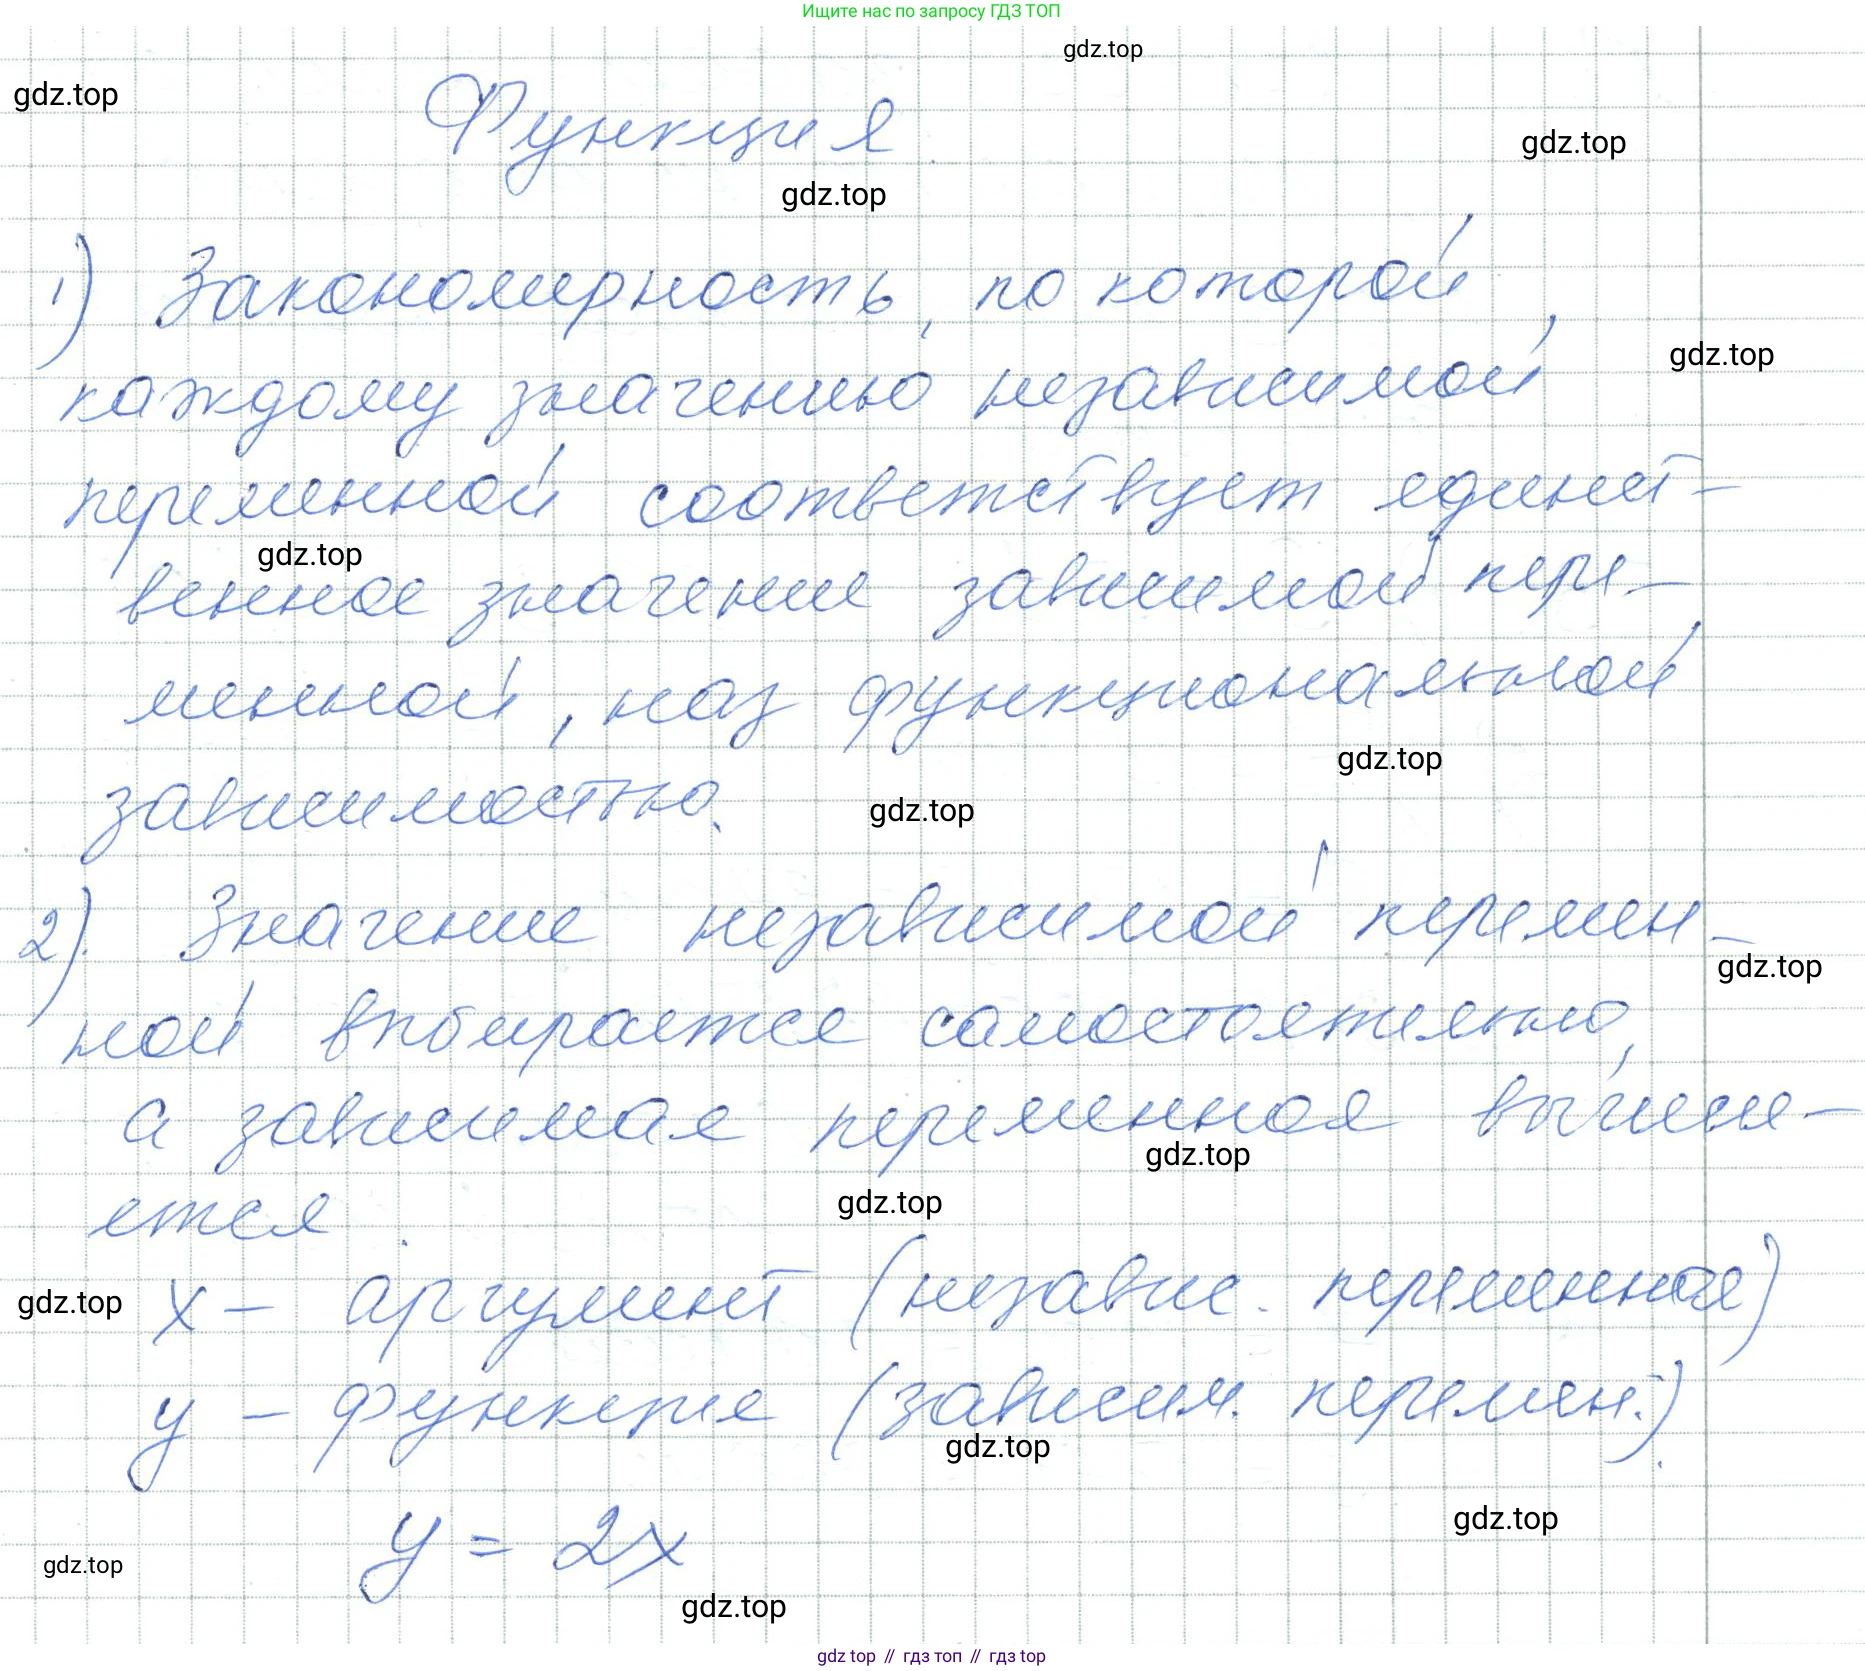 Ищите нас по запросу ГДЗ ТОП
gdz.top
gdz.top
Функция.
gdz.top
gdz.top
1) Закономерность, по которой
каждому значению независимой
gdz.top
переменной соответствует единст-
gdz.top
венное значение зависимой пере-
менной, наз функциональной
gdz.top
зависимостью.
gdz.top
2). Значение независимой перемен-
gdz.top
ной выбирается самостоятельно,
а зависимая переменная вычисл-
gdz.top
яется.
gdz.top
gdz.top
x - аргумент (независ. переменная)
y - функция (зависим. перемен.).
gdz.top
gdz.top
y = 2x
gdz.top
gdz.top
gdz top // гдз топ // гдз top